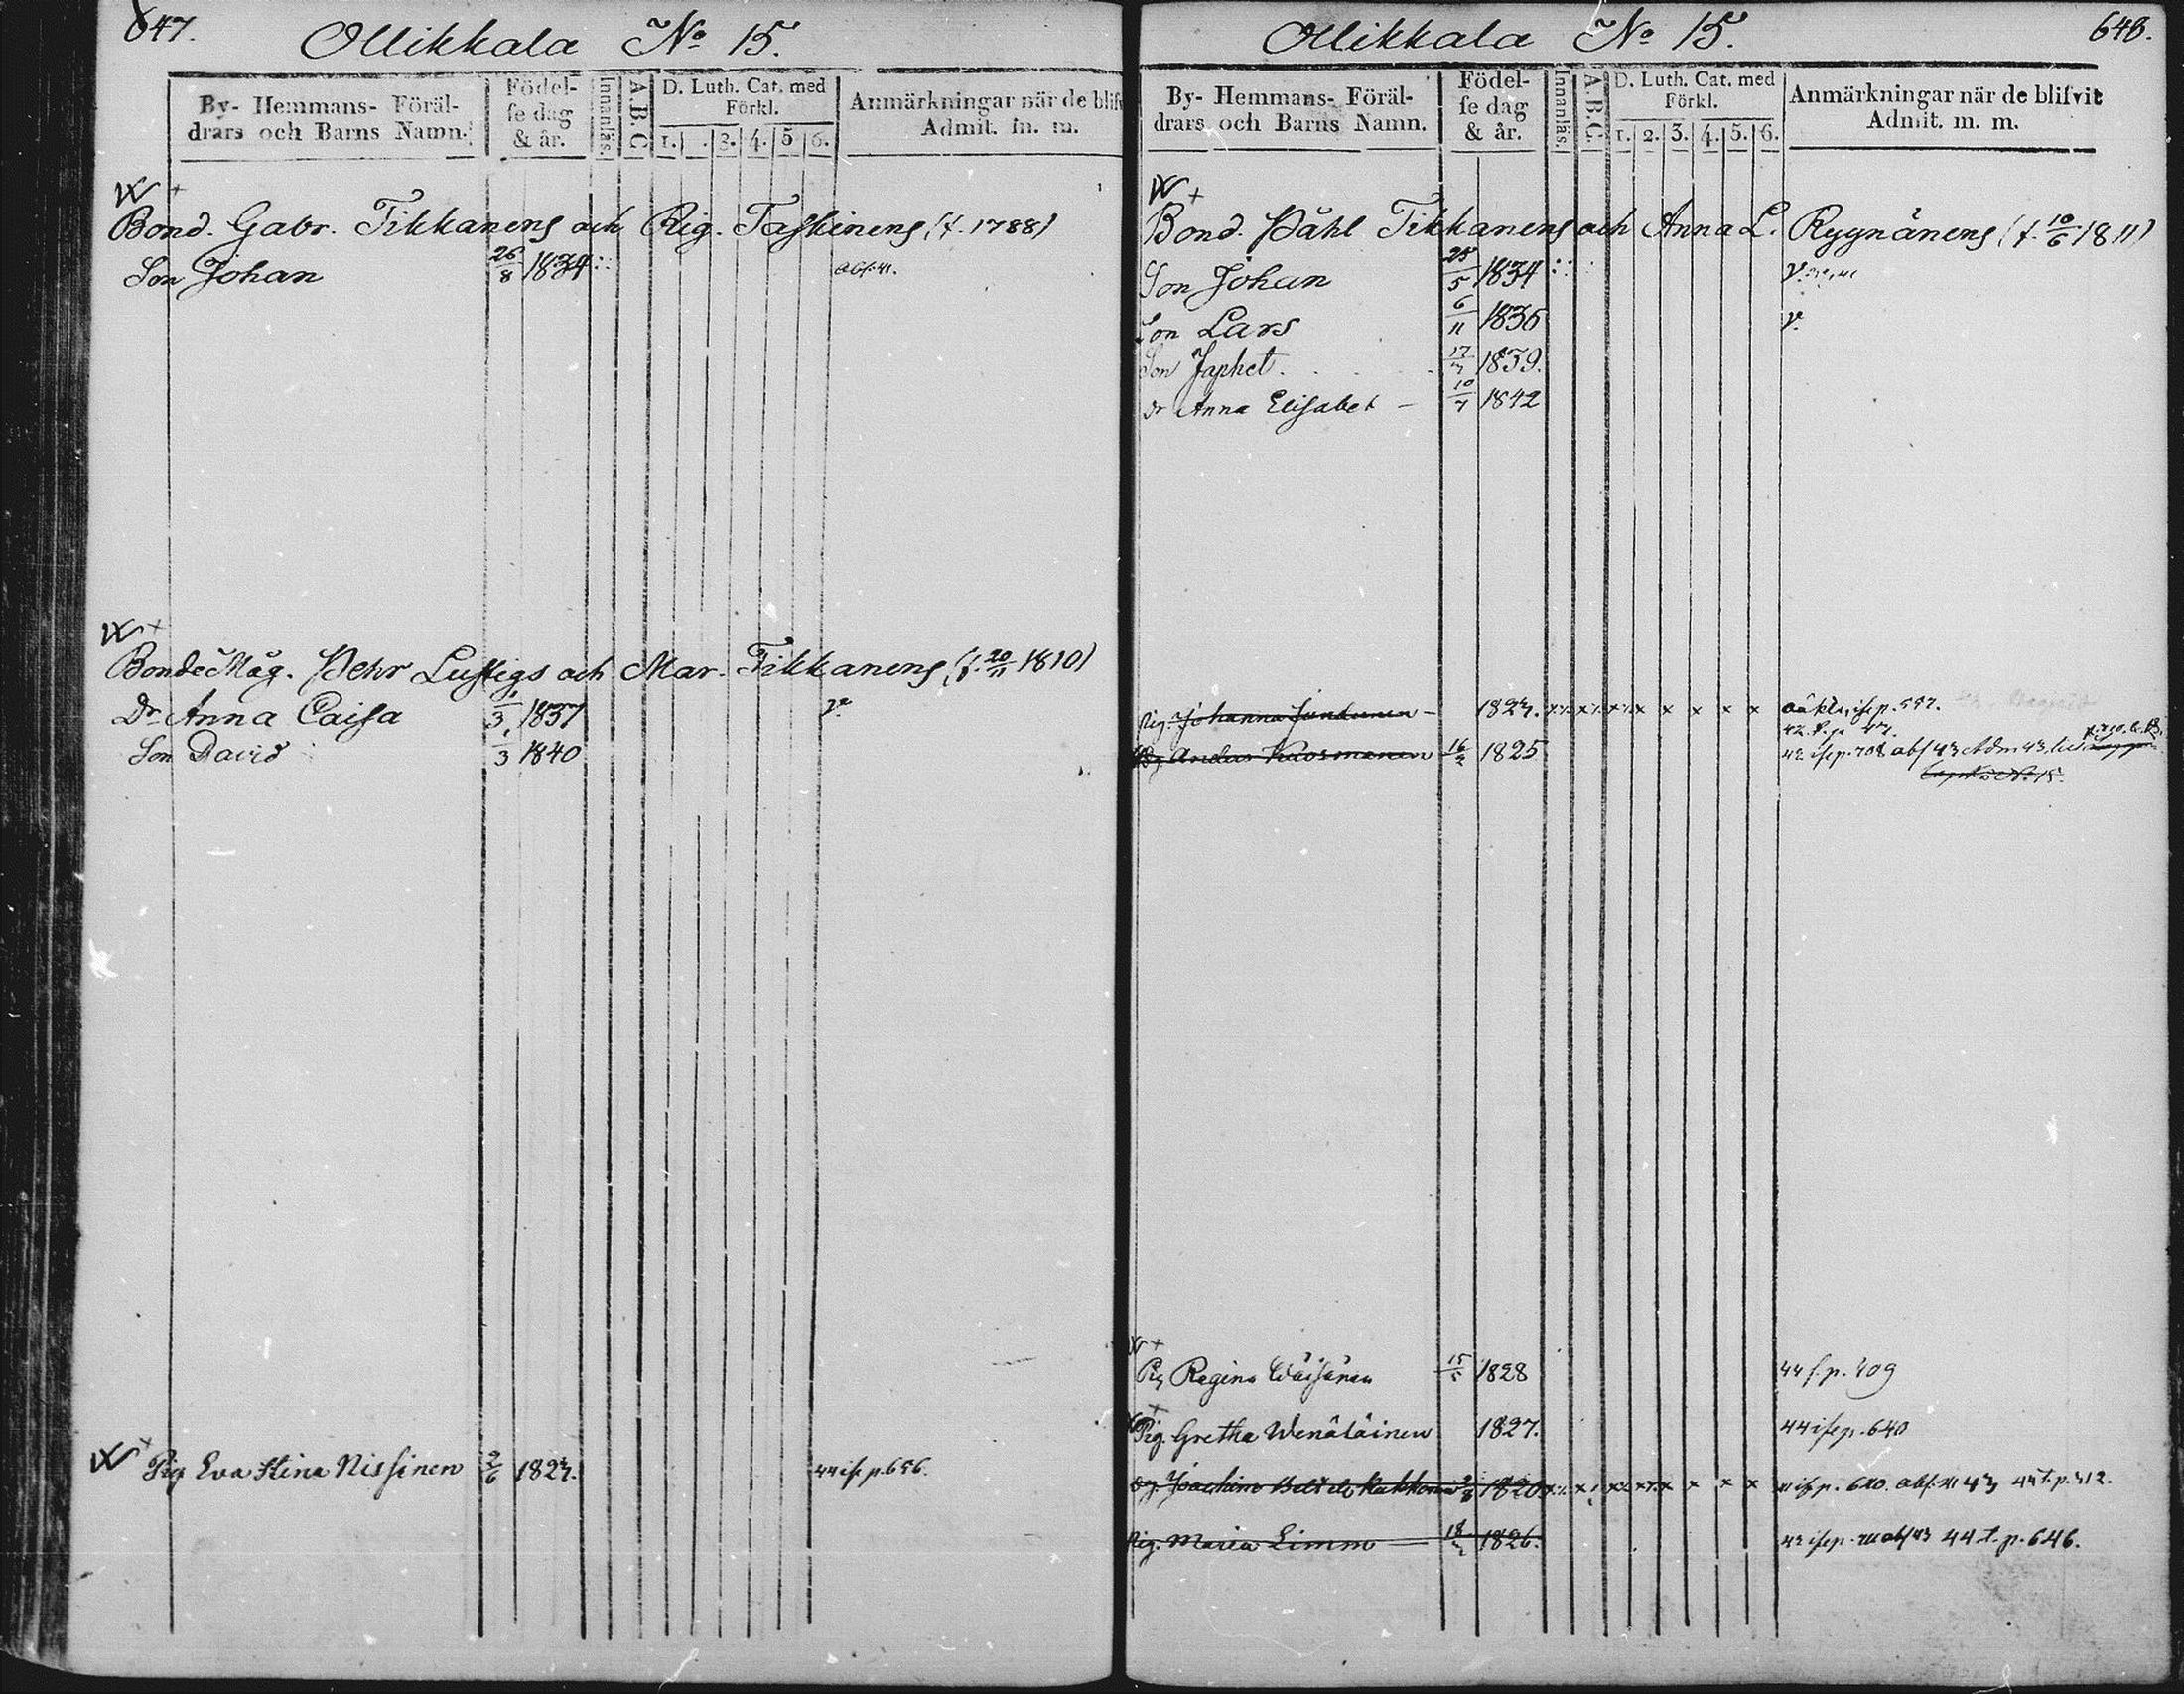 647.
Ollikkala No 15.
By- Hemmans- Föräl-
drars och Barns Namn.
Födel-
se dag
& år.
Innanläs.
A.B.C
D. Luth. Cat. med
Förkl.
1. . 3. 4. 5 6.
Anmärkningar när de blifv
Admit. m. m.
Bond. Gabr. Tikkanens och Reg. Taskinens (f. 1788)
Son Johan 26/8 1834 abs. 41.
Bonde Måg. Pehr Lustigs och Mar. Tikkanens (f. 20/11 1810)
Dr Anna Caisa 1837 v.
Son David 1840
Pig Eva Stina Nissinen 2/6 44 is. p. 656.
648.
Ollikkala No 15.
By- Hemmans- Föräl-
drars och Barns Namn.
Födel-
se dag
& år.
Innanläs.
A.B.C.
D. Luth. Cat. med
Förkl.
1. 2. 3. 4. 5. 6.
Anmärkningar när de blifvit
Admit. m. m.
Bond. Påhl Tikkanens och Anna L. Ryynänens (f. 10/6 1811)
Son Johan 25/5 1834 v.
Son Lars 6/11 1836 v.
Son Japhet 1839.
Dr Anna Elisabet 1842
Pig. Johanna x x x x x is. p. 597.
Anders Kuosmanen 1825 42 is. p. 708 abs 43 Adm 43
No 15.
Pig Regina Wäisänen 1828 44 s. p. 709
Pig. Gretha Wenäläinen 1827. 44 is. p. 640
Joachim 1820 x x x x x 41 is. p. 44 t. p. 312.
Pig. Maria Limm 1826. 44 t. p. 646.